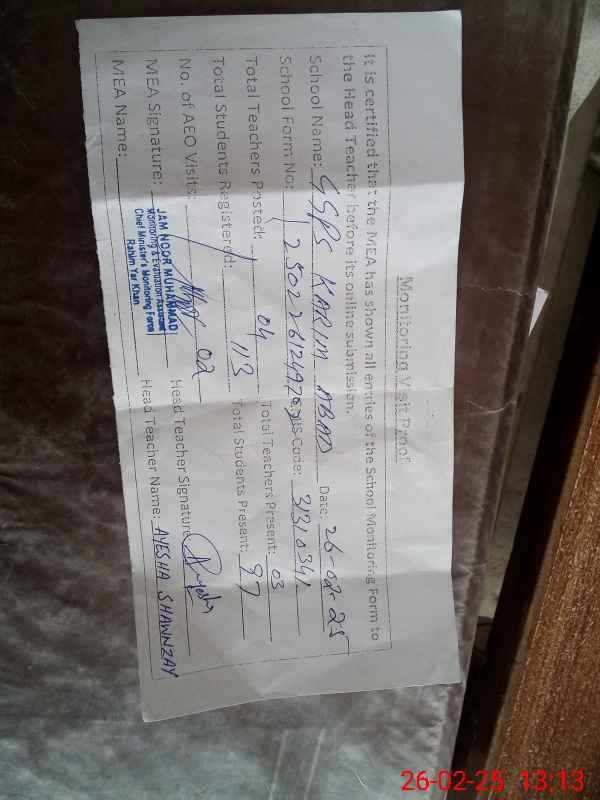 Monitoring Visit Proof
It is certified that the MEA has shown all entries of the School Monitoring Form to
the Head Teacher before its online submission.
School Name: GSPS KARIM ABAD Date: 26-02-25
School Form No: Code: 31310341
Total Teachers Posted: 04 Total Teachers Present: 03
Total Students Registered: 113 Total Students Present: 97
No. of AEO Visits: 02
MEA Signature: Head Teacher Signature
MEA Name: Head Teacher Name: AYESHA SHAWNZAY
JAM NOOR MUHAMMAD
Monitoring & Evaluation Assistant
Chief Minister's Monitoring Force
Rahim Yar Khan
26-02-25 13:13